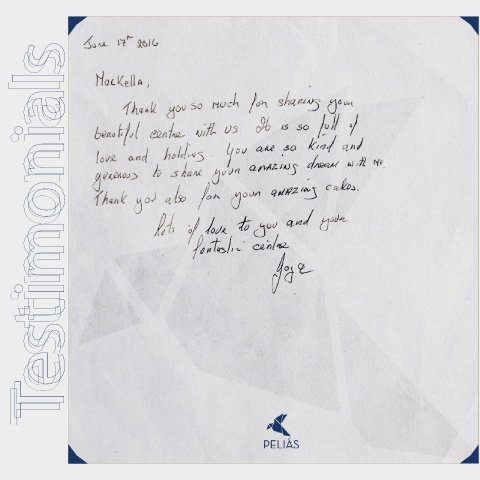 Testimonials
June 17th 2016
Mackella,
Thank you so much for sharing your
beautiful centre with us. It is so full of
love and holding. You are so kind and
generous to share your amazing dream with me.
Thank you also for your amazing cakes.
Lots of love to you and your
fantastic centre
PELIÁS